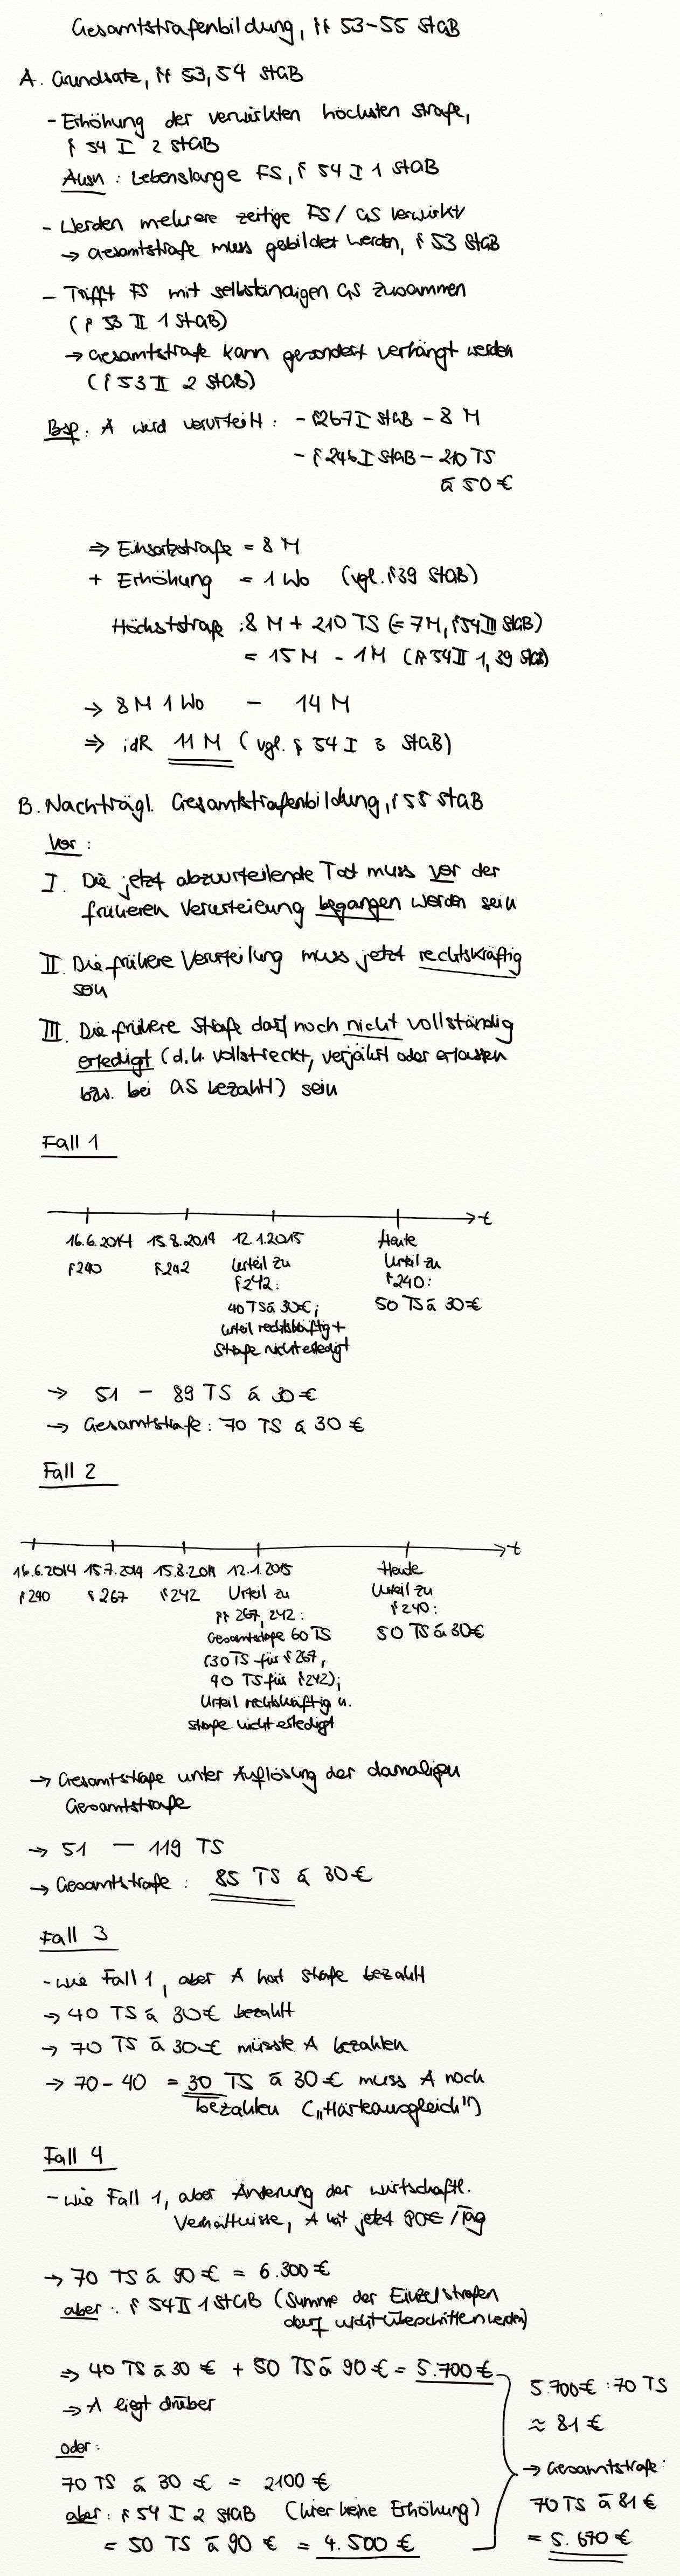 Gesamtstrafenbildung, §§ 53-55 StGB
A. Grundsatz, §§ 53, 54 StGB
- Erhöhung der verwirkten höchsten Strafe,
§ 54 I 2 StGB
Ausn : Lebenslange FS, § 54 I 1 StGB
- Werden mehrere zeitige FS / GS verwirkt
→ Gesamtstrafe muss gebildet werden, § 53 StGB
- Trifft FS mit selbständigen GS zusammen
(§ 53 II 1 StGB)
→ Gesamtstrafe kann gesondert verhängt werden
(§ 53 II 2 StGB)
Bsp: A wird verurteilt: - §267 I StGB - 8 M
- § 246 I StGB - 210 TS
à 50 €
⇒ Einsatzstrafe = 8 M
+ Erhöhung = 1 Wo (vgl. §39 StGB)
Höchststrafe : 8 M + 210 TS (= 7M, §54 III StGB)
= 15 M - 1 M (§§ 54 II 1, 39 StGB)
→ 8 M 1 Wo - 14 M
⇒ idR 11 M (vgl. § 54 I 3 StGB)
B. Nachträgl. Gesamtstrafenbildung, § 55 StGB
Vor :
I. Die jetzt abzuurteilende Tat muss vor der
früheren Verurteilung begangen worden sein
II. Die frühere Verurteilung muss jetzt rechtskräftig
sein
III. Die frühere Strafe darf noch nicht vollständig
erledigt (d.h. vollstreckt, verjährt oder erlassen
bzw. bei GS bezahlt) sein
Fall 1
t
16.6.2014 15.8.2014 12.1.2015 Heute
§240 §242 Urteil zu Urteil zu
§242: §240:
40 TS à 30€; 50 TS à 30€
Urteil rechtskräftig +
Strafe nicht erledigt
→ 51 - 89 TS à 30 €
→ Gesamtstrafe: 70 TS à 30 €
Fall 2
t
16.6.2014 15.7.2014 15.8.2014 12.1.2015 Heute
§240 §267 §242 Urteil zu Urteil zu
§§ 267, 242 : §240:
Gesamtstrafe 60 TS 50 TS à 30€
(30 TS für §267,
40 TS für §242);
Urteil rechtskräftig u.
Strafe nicht erledigt
→ Gesamtstrafe unter Auflösung der damaligen
Gesamtstrafe
→ 51 - 119 TS
→ Gesamtstrafe : 85 TS à 30€
Fall 3
- wie Fall 1, aber A hat Strafe bezahlt
→ 40 TS à 30€ bezahlt
→ 70 TS à 30€ müsste A bezahlen
→ 70 - 40 = 30 TS à 30 € muss A noch
bezahlen („Härteausgleich")
Fall 4
- wie Fall 1, aber Änderung der wirtschaftl.
Verhältnisse, A hat jetzt 90€ / Tag
→ 70 TS à 90 € = 6.300 €
aber : § 54 II 1 StGB (Summe der Einzelstrafen
darf nicht überschritten werden)
⇒ 40 TS à 30 € + 50 TS à 90 € = 5.700 €
→ A liegt drüber
oder:
70 TS à 30 € = 2100 €
aber: § 54 I 2 StGB (hier keine Erhöhung)
= 50 TS à 90 € = 4.500 €
5.700€ : 70 TS
≈ 81 €
→ Gesamtstrafe:
70 TS à 81 €
= 5.670 €